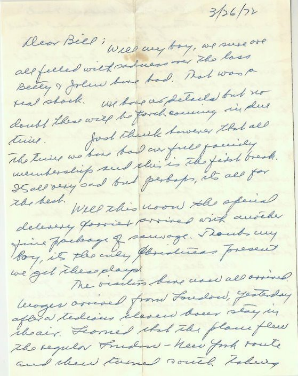 3/26/72
Dear Bill:
Well my boy, we sure are
all filled with sadness over the loss
Betty & John have had. That was a
real shock. We have no details but no
doubt these will be forthcoming in due
time. Just think however that all
the time we have had our full family
membership and this is the first break.
It's all very sad but perhaps, its all for
the best.
Well this noon the special
delivery carrier arrived with another
fine package of sausage. Thanks my
boy, its the only Christmas present
we get these days.
The visitors have now all arrived
arrived from London, yesterday
after a tedious eleven hour stay in
the air. Learned that the plane flew
the regular London - New York route
and then turned south. Taking